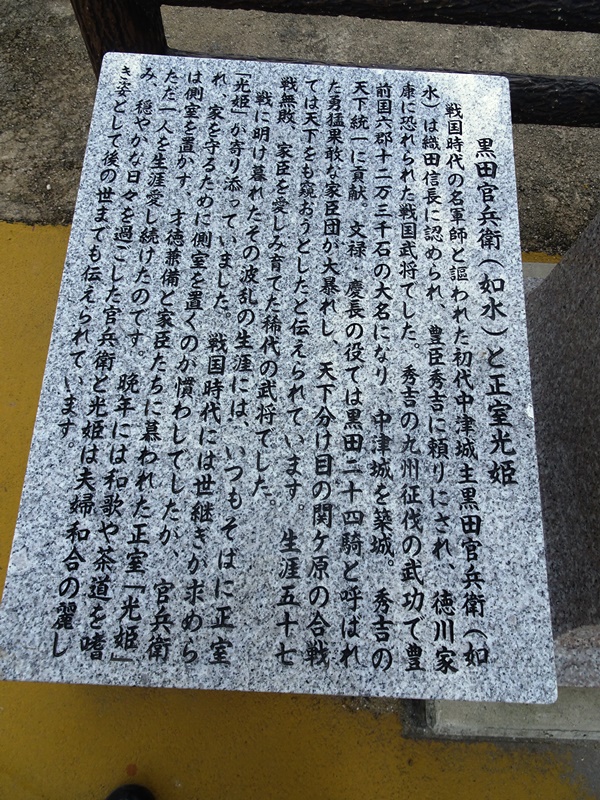 黒田官兵衛（如水）と正室光姫
戦国時代の名軍師と謳われた初代中津城主黒田官兵衛（如
水）は織田信長に認められ、豊臣秀吉に頼りにされ、徳川家
康に恐れられた戦国武将でした。秀吉の九州征伐の武功で豊
前国六郡十二万三千石の大名になり、中津城を築城。秀吉の
天下統一に貢献、文禄・慶長の役では黒田二十四騎と呼ばれ
た勇猛果敢な家臣団が大暴れし、天下分け目の関ヶ原の合戦
では天下をも窺おうとしたと伝えられています。生涯五十七
戦無敗、家臣を愛しみ育てた稀代の武将でした。
戦に明け暮れたその波乱の生涯には、いつもそばに正室
「光姫」が寄り添っていました。戦国時代には世継ぎが求めら
れ、家を守るために側室を置くのが慣わしでしたが、官兵衛
は側室を置かず、才徳兼備と家臣たちに慕われた正室「光姫」
ただ一人を生涯愛し続けたのです。晩年には和歌や茶道を嗜
み、穏やかな日々を過ごした官兵衛と光姫は夫婦和合の麗し
き姿として後の世までも伝えられています。